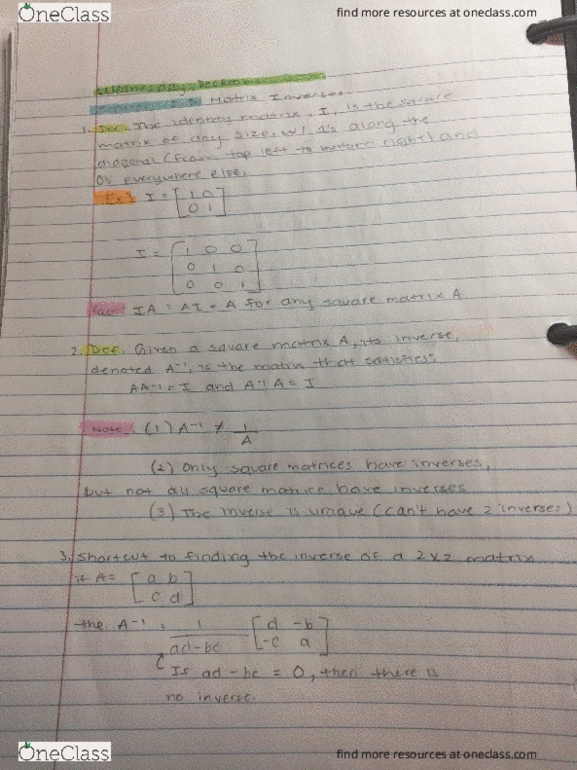 OneClass
find more resources at oneclass.com
Matrix Inverses
1. Def: The identity matrix, I, is the square
matrix of any size, w/ 1's along the
diagonal (from top left to bottom right) and
0s everywhere else.
Ex: I = [1 0
0 1]
I = [1 0 0
0 1 0
0 0 1]
IA = AI = A for any square matrix A
2. Def: Given a square matrix A, its inverse,
denoted A⁻¹, is the matrix that satisfies:
AA⁻¹ = I and A⁻¹A = I
Note: (1) A⁻¹ ≠ 1/A
(2) Only square matrices have inverses,
but not all square matrice have inverses
(3) The inverse is unique (can't have 2 inverses)
3. Shortcut to finding the inverse of a 2x2 matrix
if A = [a b
c d]
the A⁻¹ = 1/ad-bc [d -b
-c a]
If ad - bc = 0, then there is
no inverse.
OneClass
find more resources at oneclass.com